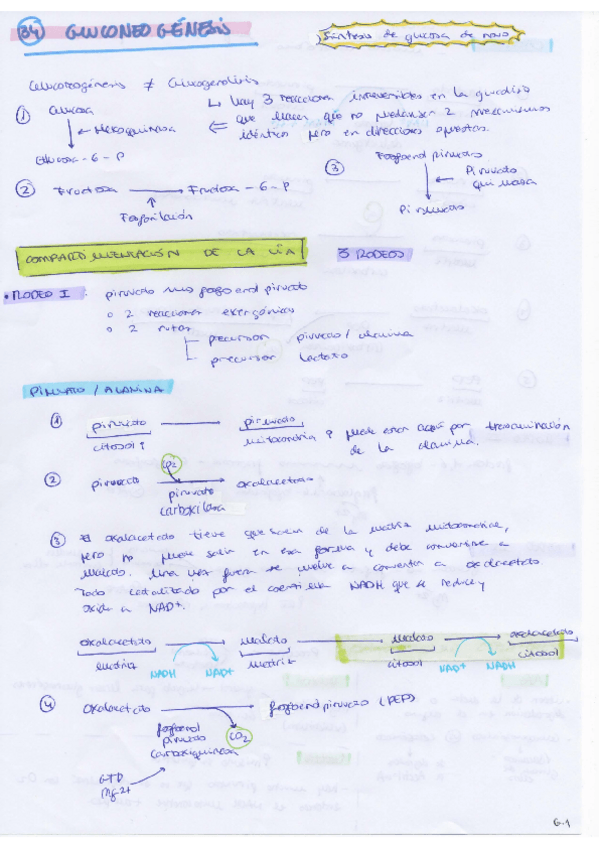 34 GLUCONEOGÉNESIS
Síntesis de glucosa de novo
Gluconeogénesis ≠ Glucogenolisis
↳ hay 3 reacciones irreversibles en la glucólisis
que hacen que no puedan ser 2 mecanismos
idénticos pero en direcciones opuestas.
① Glucosa
← Hexoquinasa
Glucosa-6-P
② Fructosa → Fructosa-6-P
↑
Fosforilación
③ Fosfoenol piruvato
← Piruvato
quinasa
Piruvato
COMPARTIMENTACIÓN DE LA VÍA
3 RODEOS
• RODEO I: piruvato fosfoenol piruvato
○ 2 reacciones exergónicas
○ 2 rutas
precursor piruvato / alanina
precursor lactato
PIRUVATO / ALANINA
① piruvato → piruvato
citosol mitocondria puede estar aquí por transaminación
de la alanina.
② piruvato → oxalacetato
CO2
piruvato
carboxilasa
③ El oxalacetato tiene que salir de la matriz mitocondrial,
pero no puede salir en esa forma y debe convertirse a
malato. Una vez fuera se vuelve a convertir a oxalacetato
Todo catalizado por el coenzima NADH que se reduce y
oxida a NAD+.
oxalacetato → malato → malato → oxalacetato
matriz matriz citosol citosol
NADH NAD+ NAD+ NADH
④ Oxalacetato → fosfoenolpiruvato (PEP)
fosfoenol
piruvato CO2
carboxiquinasa
Mg2+
6.1